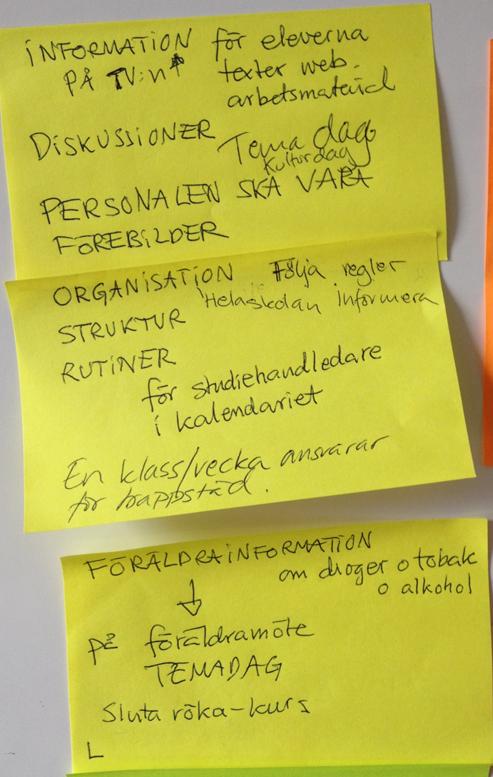 INFORMATION för eleverna
PÅ TV:n texter web-
arbetsmaterial
DISKUSSIONER Tema dag
Kulturdag
PERSONALEN SKA VARA
FÖREBILDER
ORGANISATION Följa regler
STRUKTUR Helaskolan informera
RUTINER
för studiehandledare
i kalendariet
En klass/vecka ansvarar
för trappstäd.
FÖRÄLDRAINFORMATION
om droger o tobak
o alkohol
på föräldramöte
TEMADAG
Sluta röka-kurs
L